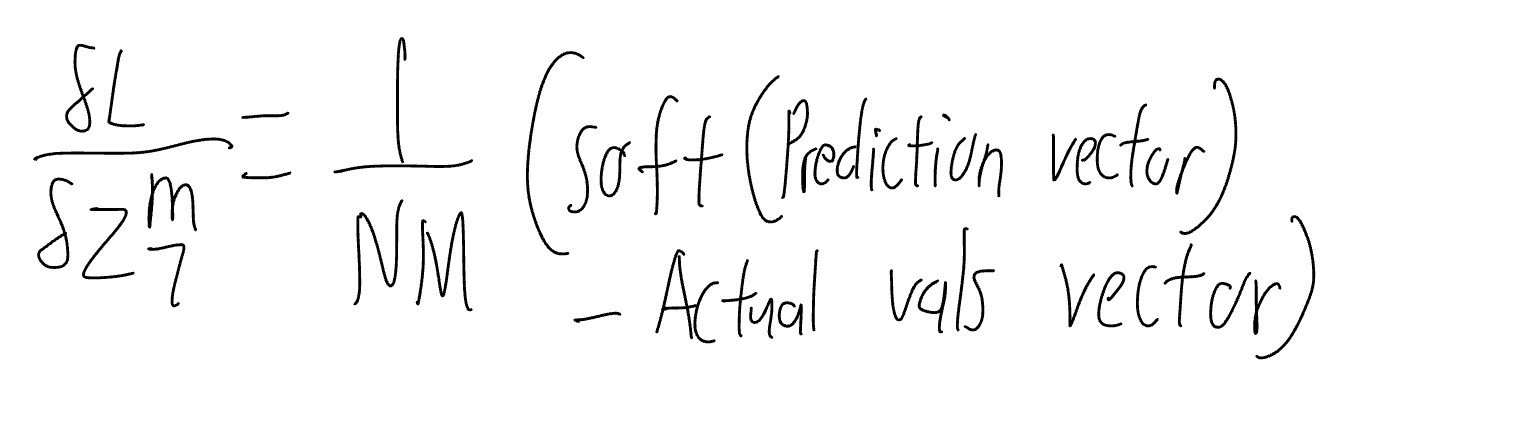 δL/δZ₇ᵐ = 1/NM (soft(Prediction vector)
- Actual vals vector)